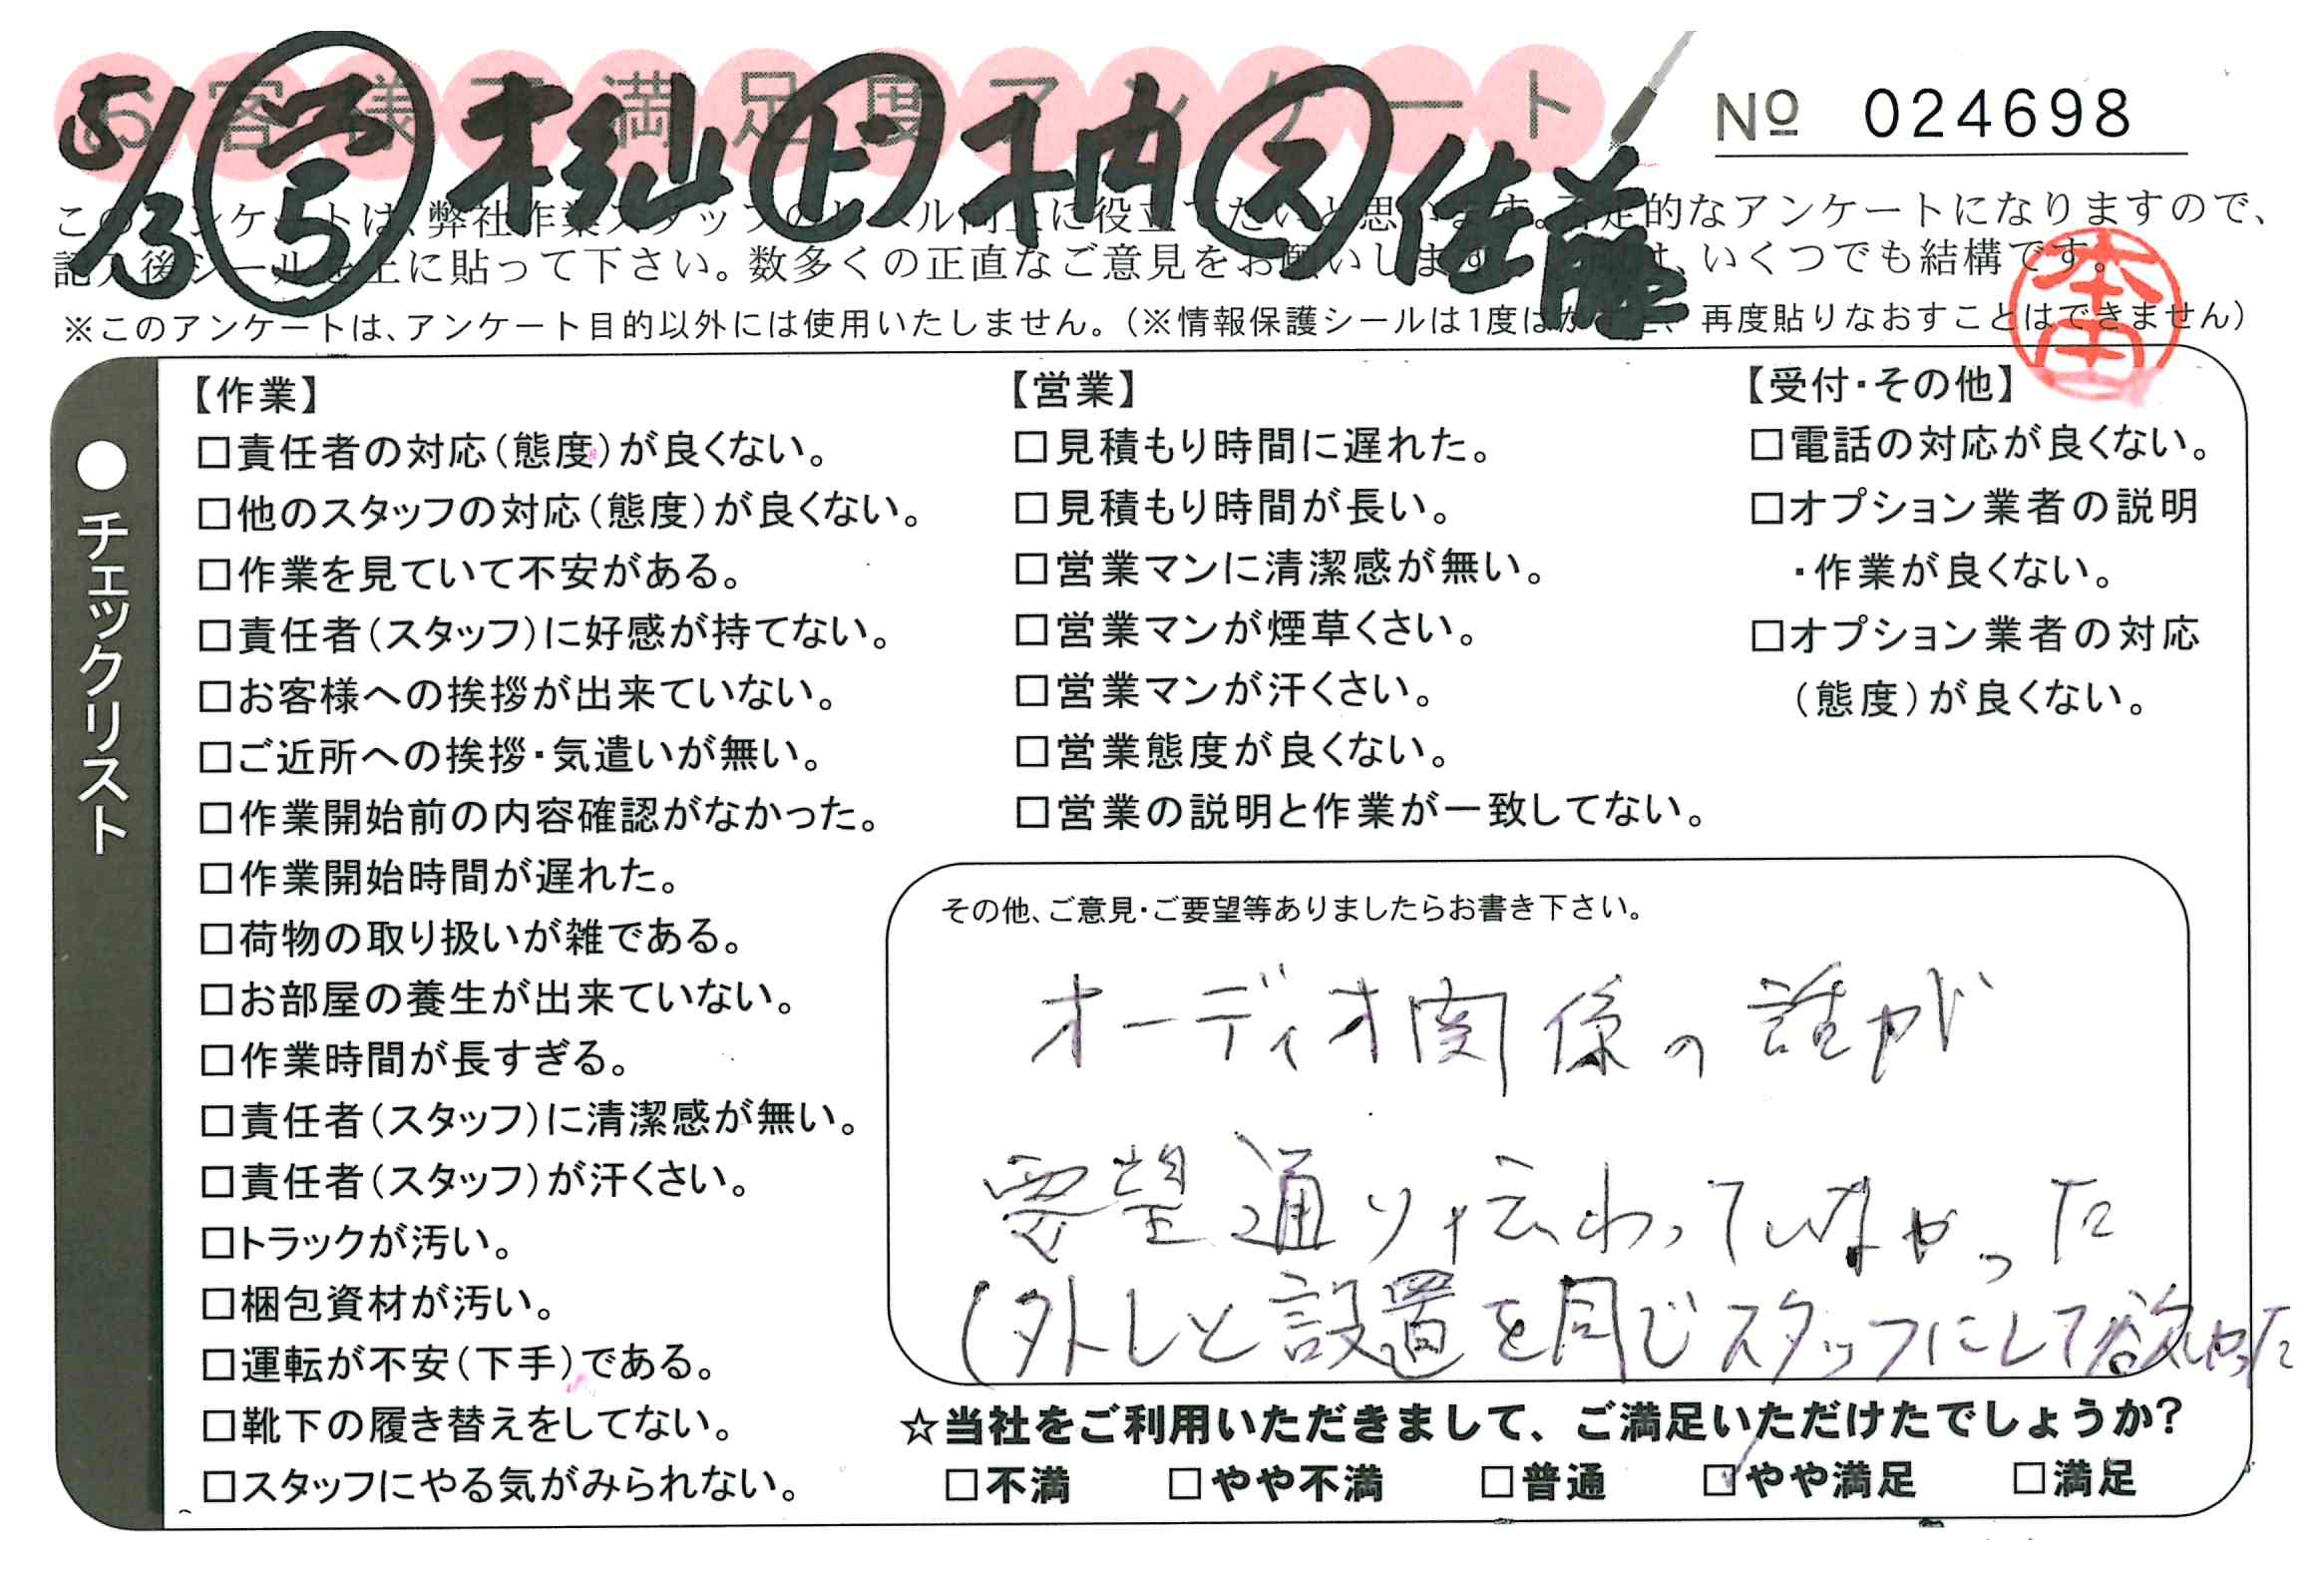 お客様不満足度アンケート
№ 024698
5/3
佐藤
このアンケートは、弊社作業スタッフのレベル向上に役立てたいと思います。否定的なアンケートになりますので、
記入後シールを上に貼って下さい。数多くの正直なご意見をお願いします。は、いくつでも結構です。
※このアンケートは、アンケート目的以外には使用いたしません。（※情報保護シールは1度はがすと、再度貼りなおすことはできません）
本田
●チェックリスト
【作業】
□責任者の対応（態度）が良くない。
□他のスタッフの対応（態度）が良くない。
□作業を見ていて不安がある。
□責任者（スタッフ）に好感が持てない。
□お客様への挨拶が出来ていない。
□ご近所への挨拶・気遣いが無い。
□作業開始前の内容確認がなかった。
□作業開始時間が遅れた。
□荷物の取り扱いが雑である。
□お部屋の養生が出来ていない。
□作業時間が長すぎる。
□責任者（スタッフ）に清潔感が無い。
□責任者（スタッフ）が汗くさい。
□トラックが汚い。
□梱包資材が汚い。
□運転が不安（下手）である。
□靴下の履き替えをしてない。
□スタッフにやる気がみられない。
【営業】
□見積もり時間に遅れた。
□見積もり時間が長い。
□営業マンに清潔感が無い。
□営業マンが煙草くさい。
□営業マンが汗くさい。
□営業態度が良くない。
□営業の説明と作業が一致してない。
【受付・その他】
□電話の対応が良くない。
□オプション業者の説明
・作業が良くない。
□オプション業者の対応
（態度）が良くない。
その他、ご意見・ご要望等ありましたらお書き下さい。
オーディオ関係の話が
要望通り伝わっていなかった
（外しと設置を同じスタッフにして欲しかった
☆当社をご利用いただきまして、ご満足いただけたでしょうか?
□不満 □やや不満 □普通 ☑やや満足 □満足